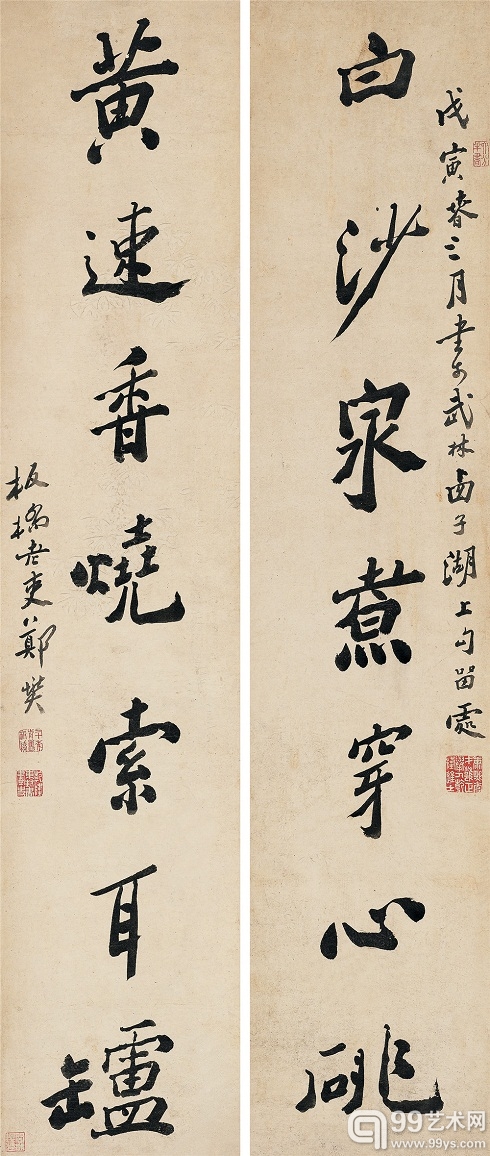 戊寅春三月書於武林西子湖上勾留處
白沙泉煮穿心
黃速香燒索耳罏
板橋老吏鄭燮
99艺术网
www.99ys.com